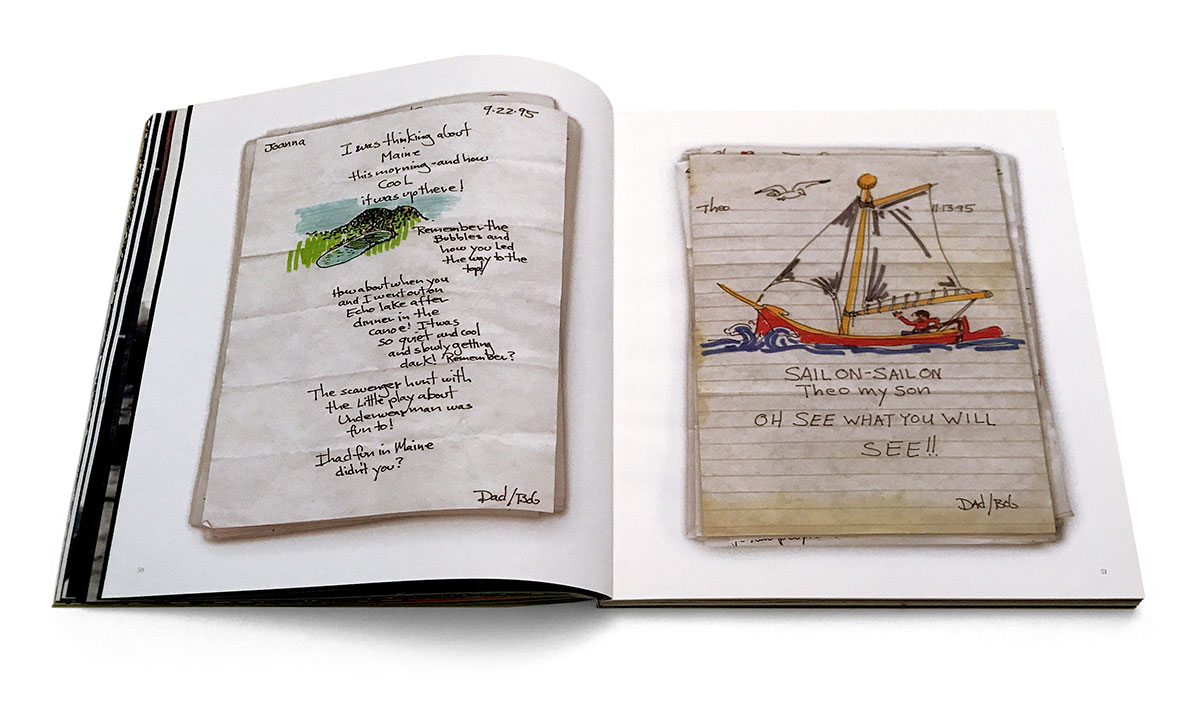 Joanna
9.22.95
I was thinking about
Maine
this morning-and how
COOL
it was up there!
Remember the
Bubbles and
how you led
the way to the
top!
How about when you
and I went out on
Echo lake after
dinner in the
canoe! It was
so quiet and cool
and slowly getting
dark! Remember?
The scavenger hunt with
the little play about
Underwearman was
fun to!
I had fun in Maine
didn't you?
Dad/Bob
50
Theo
11.13.95
SAIL ON-SAIL ON
Theo my son
OH SEE WHAT YOU WILL
SEE!!
DAD/BOB
51